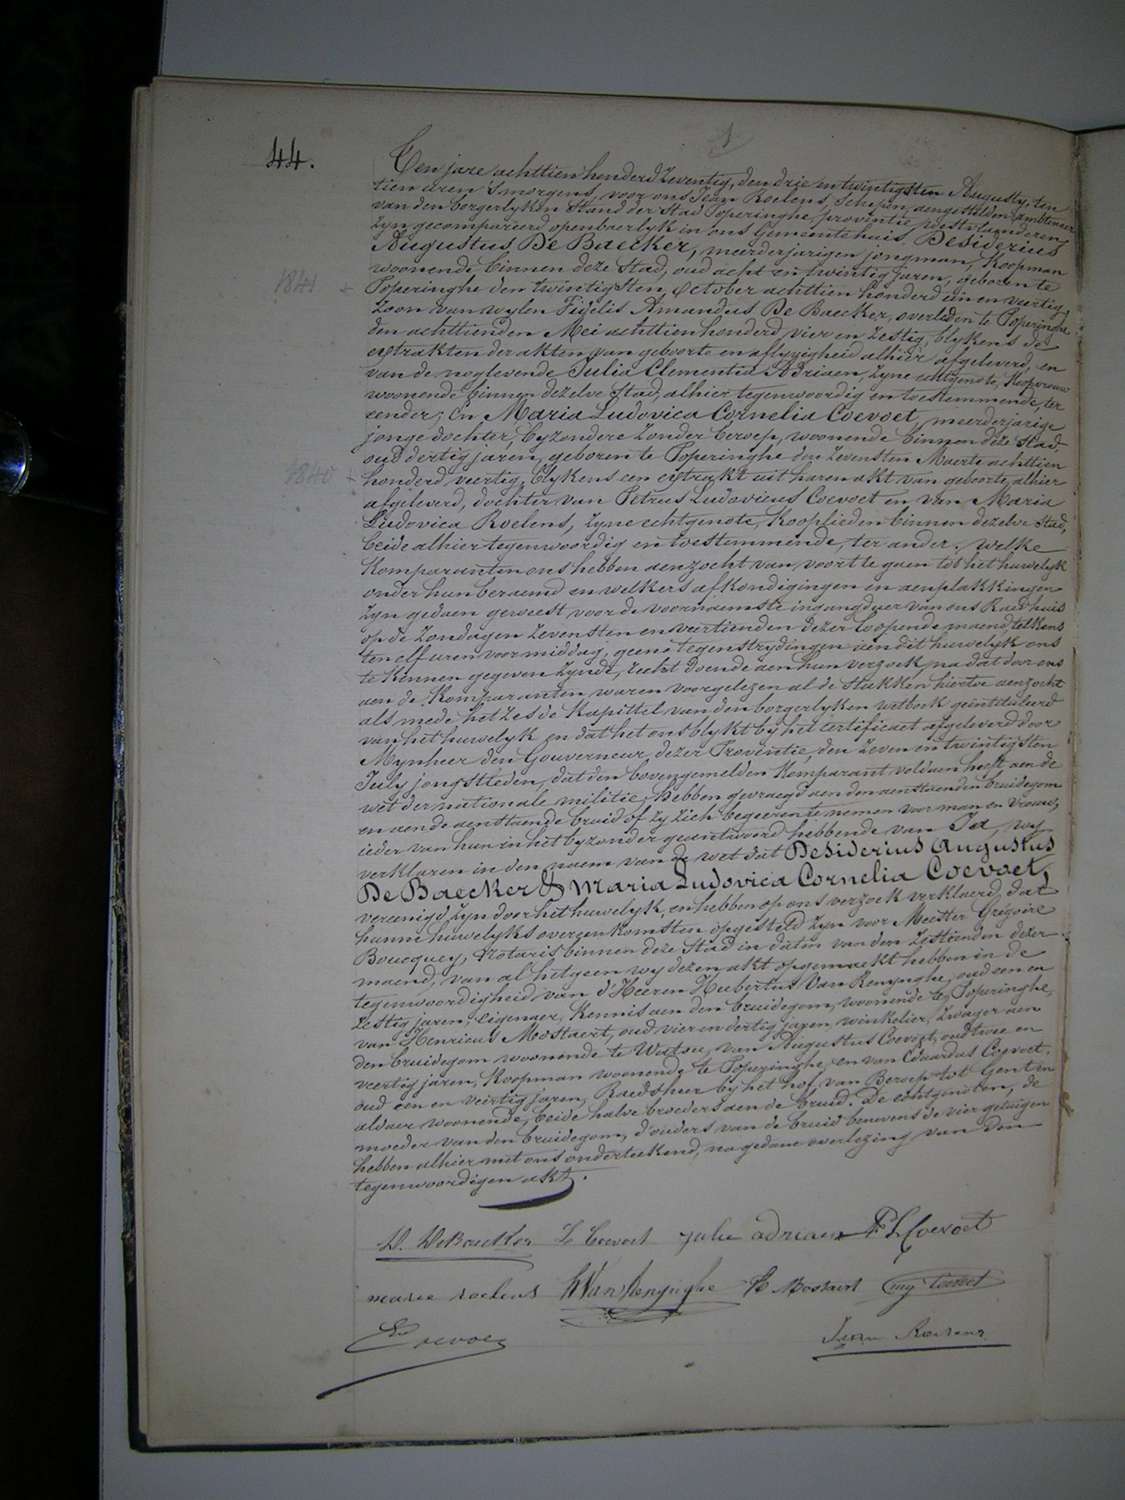 44.
Ten jare achttien honderd zeventig, den drie en twintigsten Augusty, ten
tien uren 's morgens, voor ons Jean Roelens, Schepen, aengestelden ambtenaer
van den borgerlyken Stand der Stad Poperinghe, provintie Westvlaenderen,
zyn gecompareerd openbaerlyk in ons Gemeentehuis, Desiderius
Augustus De Baecker, meerderjarigen jongman, Koopman
woonende binnen deze Stad, oud acht en twintig jaren, geboren te
1841
Poperinghe den twintigsten October achttien honderd een en veertig,
Zoon van wylen Fidelis Amandus De Baecker, overleden te Poperinghe
den achttienden Mei achttien honderd vier en zestig, blykens de
extrakten der akten van geboorte en aflyvigheid alhier afgeleverd, en
van de noglevende Julia Clementia Adriaen, zyne echtgenote, Koopvrouw
woonende binnen dezelve Stad, alhier tegenwoordig en toestemmende, ter
eender; En Maria Ludovica Cornelia Coevoet, meerderjarige
jonge dochter, byzondere zonder beroep, woonende binnen deze Stad,
oud dertig jaren, geboren te Poperinghe den zevensten Maerte achttien
1840
honderd veertig, blykens een extrakt uit haren akt van geboorte, alhier
afgeleverd, dochter van Petrus Ludovicus Coevoet en van Maria
Ludovica Roelens, zyne echtgenote, Kooplieden binnen dezelve Stad,
beide alhier tegenwoordig en toestemmende, ter ander. Welke
Komparanten ons hebben aenzocht van voort te gaen tot het huwelyk
onder hun beraemd en welkers afkondigingen en aenplakkingen
zyn gedaen geweest voor de voornaemste ingangdeur van ons Raedhuis
op de Zondagen zevensten en veertienden dezer loopende maend, telkens
ten elf uren voormiddag, geene tegenstrydingen aen dit huwelyk ons
te kennen gegeven zynde, recht doende aen hun verzoek, na dat door ons
aen de Komparanten waren voorgelezen al de stukken hiertoe aenzocht
als mede het zesde Kapittel van den borgerlyken wetboek geïntituleerd
van het huwelyk en dat het ons blykt by het certificaet afgeleverd door
Mynheer den Gouverneur dezer Provintie, den zeven en twintigsten
July jongstleden, dat den bovengemelden Komparant voldaen heeft aen de
wet der nationale militie, Hebben gevraegd aen den aenstaenden bruidegom
en aen de aenstaende bruid of zy zich begeeren te nemen voor man en vrouw,
ieder van hun in het byzonder geantwoord hebbende van Ja, wy
verklaren in den naem van de wet dat Desiderius Augustus
De Baecker & Maria Ludovica Cornelia Coevoet,
vereenigd zyn door het huwelyk, en hebben op ons verzoek verklaerd dat
hunne huwelyks overeenkomsten opgesteld zyn voor Meester Grégoire
Boucquey, Notaris binnen deze Stad in daten van den zestienden dezer
maend, van al hetgeen wy dezen akt opgemaekt hebben in de
tegenwoordigheid van d'Heeren Hubertus Van Renynghe, oud een en
zestig jaren, eigenaer, kennis aen den bruidegom, woonende te Poperinghe,
van Henricus Mostaert, oud vier en dertig jaren, winkelier, zwager aen
den bruidegom woonende te Watou, van Augustus Coevoet, oud twee en
veertig jaren, Koopman woonende te Poperinghe, en van Eduardus Coevoet,
oud een en veertig jaren, Raedsheer by het hof van Beroep tot Gent en
aldaer woonende, beide halve broeders aen de bruid. De echtgenoten, de
moeder van den bruidegom, d'ouders van de bruid benevens de vier getuigen
hebben alhier met ons onderteekend, na gedane overlezing van den
tegenwoordigen akt.
D. DeBaecker L Coevoet julie adriaen P L Coevoet
marie roelens H Van Renynghe H Mostaert Aug Coevoet
E Coevoet Jean Roelens